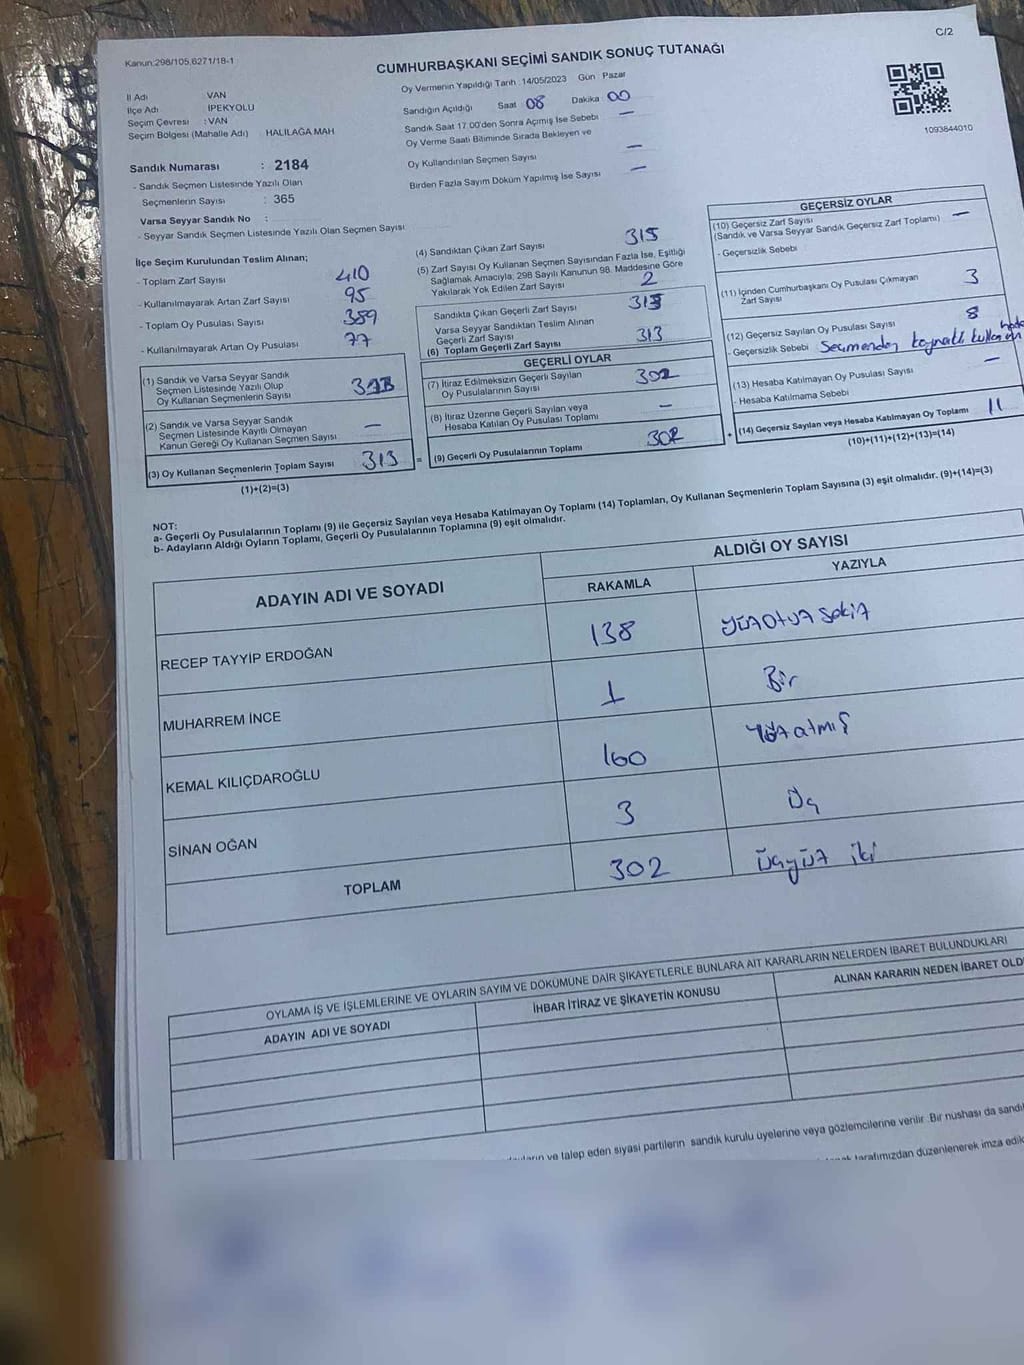 C/2
Kanun:298/105,6271/18-1
CUMHURBAŞKANI SEÇİMİ SANDIK SONUÇ TUTANAĞI
İl Adı VAN
İlçe Adı İPEKYOLU
Seçim Çevresi : VAN
Seçim Bölgesi (Mahalle Adı) HALİLAĞA MAH
Oy Vermenin Yapıldığı Tarih 14/05/2023 Gün Pazar
Sandığın Açıldığı Saat 08 Dakika 00
Sandık Saat 17.00'den Sonra Açmış İse Sebebi —
Oy Verme Saati Bitiminde Sırada Bekleyen ve
Oy Kullandırılan Seçmen Sayısı —
Birden Fazla Sayım Döküm Yapılmış İse Sayısı —
1093844010
Sandık Numarası : 2184
- Sandık Seçmen Listesinde Yazılı Olan
Seçmenlerin Sayısı : 365
Varsa Seyyar Sandık No :
- Seyyar Sandık Seçmen Listesinde Yazılı Olan Seçmen Sayısı
İlçe Seçim Kurulundan Teslim Alınan;
- Toplam Zarf Sayısı 410
- Kullanılmayarak Artan Zarf Sayısı 95
- Toplam Oy Pusulası Sayısı 389
- Kullanılmayarak Artan Oy Pusulası 77
(1) Sandık ve Varsa Seyyar Sandık
Seçmen Listesinde Yazılı Olup
Oy Kullanan Seçmenlerin Sayısı
(2) Sandık ve Varsa Seyyar Sandık
Seçmen Listesinde Kayıtlı Olmayan
Kanun Gereği Oy Kullanan Seçmen Sayısı —
(3) Oy Kullanan Seçmenlerin Toplam Sayısı 313 =
(1)+(2)=(3)
(4) Sandıktan Çıkan Zarf Sayısı 315
(5) Zarf Sayısı Oy Kullanan Seçmen Sayısından Fazla İse, Eşitliği
Sağlamak Amacıyla; 298 Sayılı Kanunun 98. Maddesine Göre
Yakılarak Yok Edilen Zarf Sayısı 2
Sandıkta Çıkan Geçerli Zarf Sayısı 313
Varsa Seyyar Sandıktan Teslim Alınan
Geçerli Zarf Sayısı
(6) Toplam Geçerli Zarf Sayısı 313
GEÇERLİ OYLAR
(7) İtiraz Edilmeksizin Geçerli Sayılan
Oy Pusulalarının Sayısı 302
(8) İtiraz Üzerine Geçerli Sayılan veya
Hesaba Katılan Oy Pusulası Toplamı —
(9) Geçerli Oy Pusulalarının Toplamı 302 +
GEÇERSİZ OYLAR
(10) Geçersiz Zarf Sayısı
(Sandık ve Varsa Seyyar Sandık Geçersiz Zarf Toplamı) —
- Geçersizlik Sebebi
(11) İçinden Cumhurbaşkanı Oy Pusulası Çıkmayan
Zarf Sayısı 3
(12) Geçersiz Sayılan Oy Pusulası Sayısı 8
- Geçersizlik Sebebi Seçmenden kaynaklı
(13) Hesaba Katılmayan Oy Pusulası Sayısı —
- Hesaba Katılmama Sebebi
(14) Geçersiz Sayılan veya Hesaba Katılmayan Oy Toplamı 11
(10)+(11)+(12)+(13)=(14)
NOT:
a- Geçerli Oy Pusulalarının Toplamı (9) ile Geçersiz Sayılan veya Hesaba Katılmayan Oy Toplamı (14) Toplamları, Oy Kullanan Seçmenlerin Toplam Sayısına (3) eşit olmalıdır. (9)+(14)=(3)
b- Adayların Aldığı Oyların Toplamı, Geçerli Oy Pusulalarının Toplamına (9) eşit olmalıdır.
ADAYIN ADI VE SOYADI
ALDIĞI OY SAYISI
RAKAMLA YAZIYLA
RECEP TAYYİP ERDOĞAN 138 yüz otuz sekiz
MUHARREM İNCE 1 Bir
KEMAL KILIÇDAROĞLU 160 yüz atmış
SİNAN OĞAN 3 üç
TOPLAM 302 üçyüz iki
OYLAMA İŞ VE İŞLEMLERİNE VE OYLARIN SAYIM VE DÖKÜMÜNE DAİR ŞİKAYETLERLE BUNLARA AİT KARARLARIN NELERDEN İBARET BULUNDUKLARI
ADAYIN ADI VE SOYADI
İHBAR İTİRAZ VE ŞİKAYETİN KONUSU
ALINAN KARARIN NEDEN İBARET OLD
ve talep eden siyasi partilerin sandık kurulu üyelerine veya gözlemcilerine verilir. Bir nüshası da
tarafımızdan düzenlenerek imza